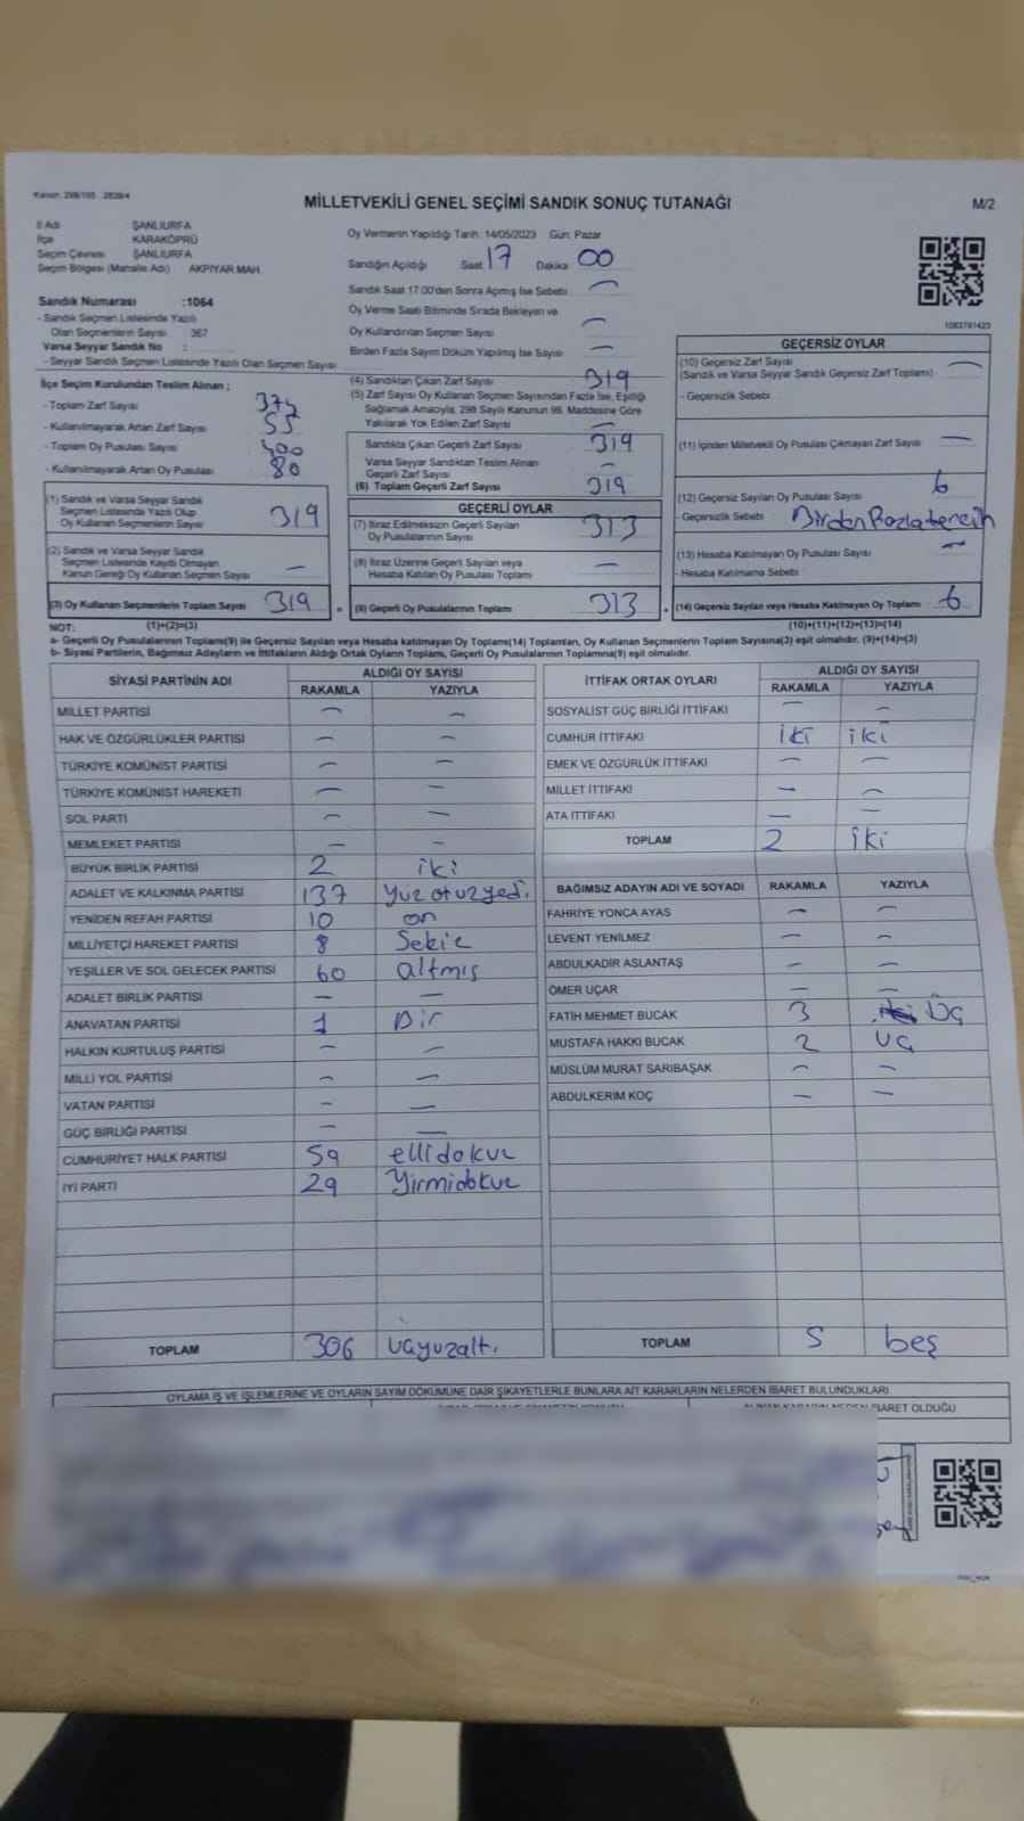 MİLLETVEKİLİ GENEL SEÇİMİ SANDIK SONUÇ TUTANAĞI
M/2
İl Adı ŞANLIURFA
İlçe KARAKÖPRÜ
Seçim Çevresi ŞANLIURFA
Seçim Bölgesi (Mahalle Adı) AKPIYAR MAH.
Sandık Numarası :1064
- Sandık Seçmen Listesinde Yazılı
Olan Seçmenlerin Sayısı 367
Varsa Seyyar Sandık No :
- Seyyar Sandık Seçmen Listesinde Yazılı Olan Seçmen Sayısı
Oy Vermenin Yapıldığı Tarih: 14/05/2023 Gün: Pazar
Sandığın Açıldığı Saat 17 Dakika 00
Sandık Saat 17.00'den Sonra Açılmış İse Sebebi —
Oy Verme Saati Bitiminde Sırada Bekleyen ve
Oy Kullandırılan Seçmen Sayısı —
Birden Fazla Sayım Döküm Yapılmış İse Sayısı —
1083781423
İlçe Seçim Kurulundan Teslim Alınan ;
- Toplam Zarf Sayısı 374
- Kullanılmayarak Artan Zarf Sayısı 55
- Toplam Oy Pusulası Sayısı 400
- Kullanılmayarak Artan Oy Pusulası 80
(1) Sandık ve Varsa Seyyar Sandık
Seçmen Listesinde Yazılı Olup
Oy Kullanan Seçmenlerin Sayısı 319
(2) Sandık ve Varsa Seyyar Sandık
Seçmen Listesinde Kayıtlı Olmayan
Kanun Gereği Oy Kullanan Seçmen Sayısı —
(3) Oy Kullanan Seçmenlerin Toplam Sayısı 319
(4) Sandıktan Çıkan Zarf Sayısı 319
(5) Zarf Sayısı Oy Kullanan Seçmen Sayısından Fazla İse, Eşitliği
Sağlamak Amacıyla, 298 Sayılı Kanunun 98. Maddesine Göre
Yakılarak Yok Edilen Zarf Sayısı —
Sandıkta Çıkan Geçerli Zarf Sayısı 319
Varsa Seyyar Sandıktan Teslim Alınan
Geçerli Zarf Sayısı —
(6) Toplam Geçerli Zarf Sayısı 319
GEÇERLİ OYLAR
(7) İtiraz Edilmeksizin Geçerli Sayılan
Oy Pusulalarının Sayısı 313
(8) İtiraz Üzerine Geçerli Sayılan veya
Hesaba Katılan Oy Pusulası Toplamı —
(9) Geçerli Oy Pusulalarının Toplamı 313
GEÇERSİZ OYLAR
(10) Geçersiz Zarf Sayısı
(Sandık ve Varsa Seyyar Sandık Geçersiz Zarf Toplamı) —
- Geçersizlik Sebebi
(11) İçinden Milletvekili Oy Pusulası Çıkmayan Zarf Sayısı —
(12) Geçersiz Sayılan Oy Pusulası Sayısı 6
- Geçersizlik Sebebi Birden Fazla tercih
(13) Hesaba Katılmayan Oy Pusulası Sayısı —
- Hesaba Katılmama Sebebi
(14) Geçersiz Sayılan veya Hesaba Katılmayan Oy Toplamı 6
NOT: (1)+(2)=(3) (10)+(11)+(12)+(13)=(14)
a- Geçerli Oy Pusulalarının Toplamı(9) ile Geçersiz Sayılan veya Hesaba katılmayan Oy Toplamı(14) Toplamları, Oy Kullanan Seçmenlerin Toplam Sayısına(3) eşit olmalıdır. (9)+(14)=(3)
b- Siyasi Partilerin, Bağımsız Adayların ve İttifakların Aldığı Ortak Oyların Toplamı, Geçerli Oy Pusulalarının Toplamına(9) eşit olmalıdır.
SİYASİ PARTİNİN ADI ALDIĞI OY SAYISI
RAKAMLA YAZIYLA
MİLLET PARTİSİ — —
HAK VE ÖZGÜRLÜKLER PARTİSİ — —
TÜRKİYE KOMÜNİST PARTİSİ — —
TÜRKİYE KOMÜNİST HAREKETİ — —
SOL PARTİ — —
MEMLEKET PARTİSİ — —
BÜYÜK BİRLİK PARTİSİ 2 iki
ADALET VE KALKINMA PARTİSİ 137 yüz otuzyedi.
YENİDEN REFAH PARTİSİ 10 on
MİLLİYETÇİ HAREKET PARTİSİ 8 Sekiz
YEŞİLLER VE SOL GELECEK PARTİSİ 60 altmış
ADALET BİRLİK PARTİSİ — —
ANAVATAN PARTİSİ 1 Bir
HALKIN KURTULUŞ PARTİSİ — —
MİLLİ YOL PARTİSİ — —
VATAN PARTİSİ — —
GÜÇ BİRLİĞİ PARTİSİ — —
CUMHURİYET HALK PARTİSİ 59 ellidokuz
İYİ PARTİ 29 Yirmidokuz
TOPLAM 306 üçyüzaltı.
İTTİFAK ORTAK OYLARI ALDIĞI OY SAYISI
RAKAMLA YAZIYLA
SOSYALİST GÜÇ BİRLİĞİ İTTİFAKI — —
CUMHUR İTTİFAKI iki iki
EMEK VE ÖZGÜRLÜK İTTİFAKI — —
MİLLET İTTİFAKI — —
ATA İTTİFAKI — —
TOPLAM 2 iki
BAĞIMSIZ ADAYIN ADI VE SOYADI RAKAMLA YAZIYLA
FAHRİYE YONCA AYAS — —
LEVENT YENİLMEZ — —
ABDULKADİR ASLANTAŞ — —
ÖMER UÇAR — —
FATİH MEHMET BUCAK 3 Üç
MUSTAFA HAKKI BUCAK 2 üç
MÜSLÜM MURAT SARIBAŞAK — —
ABDULKERİM KOÇ — —
TOPLAM 5 beş
OYLAMA İŞ VE İŞLEMLERİNE VE OYLARIN SAYIM DÖKÜMÜNE DAİR ŞİKAYETLERLE BUNLARA AİT KARARLARIN NELERDEN İBARET BULUNDUKLARI
İBARET OLDUĞU